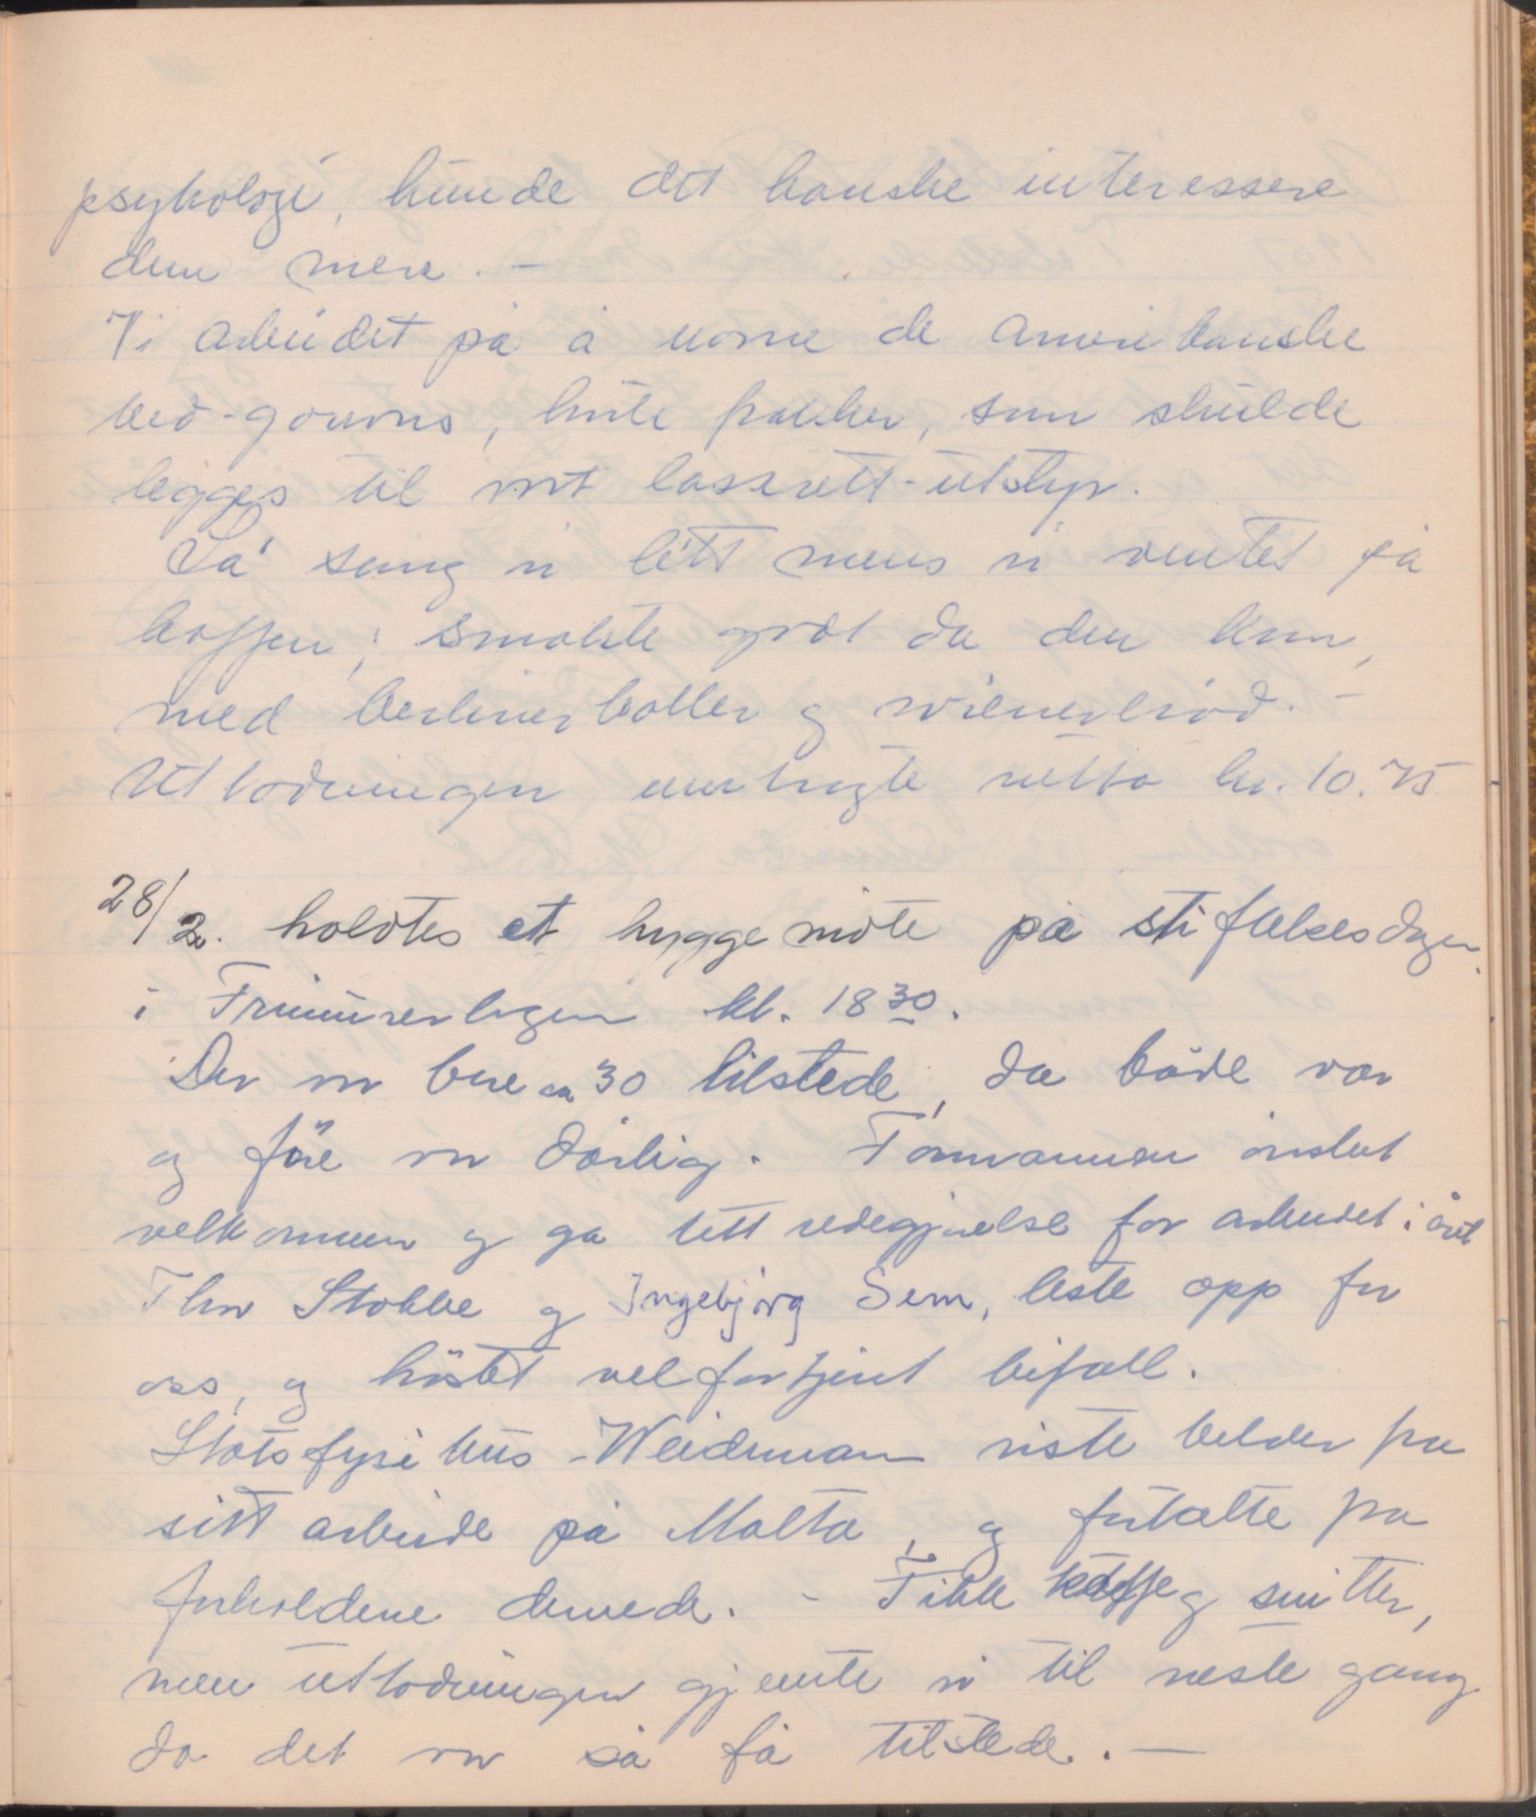 psykologi, kunde det kanske interessere
dem mere. –
Vi arbeidet på å                de amerikanske
bed-gowns, hvite frakker, som skulde
legges til vort lasarett-utstyr.
Så sang vi litt mens vi ventet på
kaffen; smakte godt da den kom,
med berlinerboller og wienerbrød. –
Utlodningen innbragte netto kr. 10.75
28/2. holdtes et hyggemöte på stiftelsesdagen
i Frimurerlogen kl. 18 30.
Der var bare ca 30 tilstede, da både vær
og före var dårlig. Formannen önsket
velkommen og ga litt redegjørelse for arbeidet i året
Thor Stokke og Ingebjörg Sem, leste opp for
oss, og höstet velfortjent bifall.
Statsfysikus Weideman viste bilder fra
sitt arbeide på Malta, og fortalte fra
forholdene dernede. – Fikk kaffe og snitter,
men utlodningen gjemte vi til neste gang
da det var så få tilstede. —